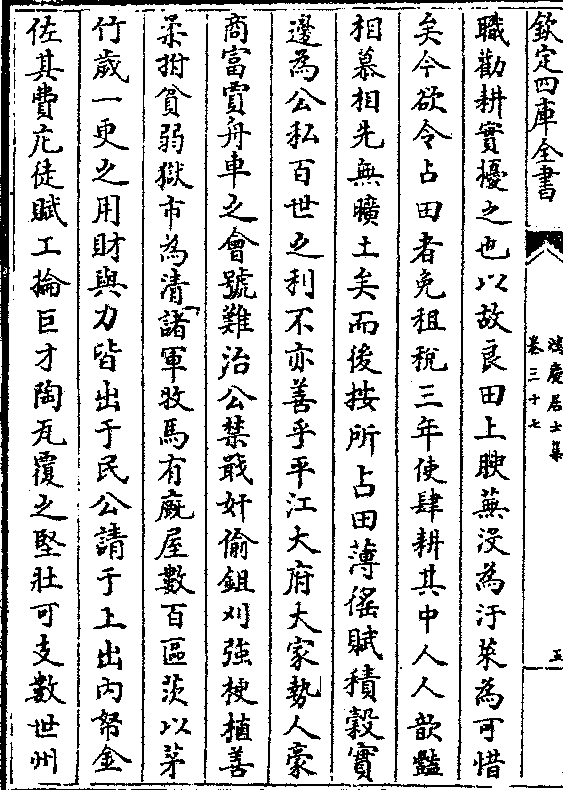 欽定四庫全書
鴻慶居士集
卷三十七
五
職勸耕實擾之也以故良田上腴蕪沒為汙萊為可惜
矣今欲令占田者免租稅三年使肆耕其中人人歆豔
相慕相先無曠土矣而後按所占田薄徭賦積穀實
邊為公私百世之利不亦善乎平江大府大家勢人豪
商富賈舟車之會號難治公禁戢奸偷鉏刈強梗植善
柔拊貧弱獄市為清諸軍牧馬有廐屋數百區茨以茅
竹歲一更之用財與力皆出于民公請于上出內帑金
佐其費庀徒賦工掄巨才陶瓦覆之堅壯可支數世州